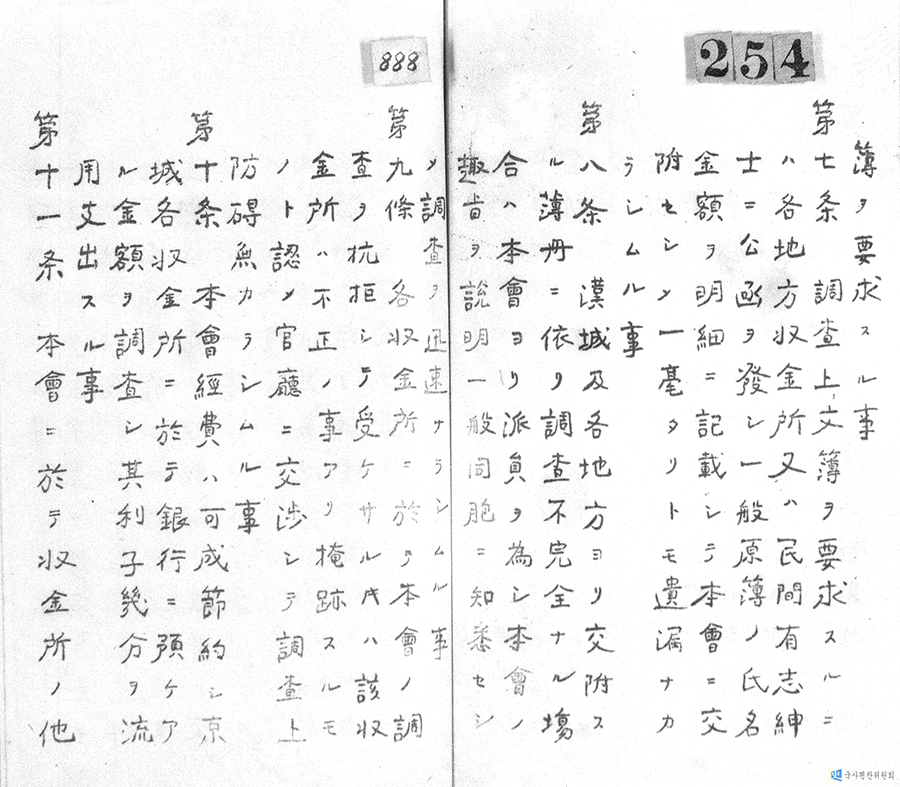 254
簿ヲ要求スル事
第七条 調査上文簿ヲ要求スルニ
ハ各地方収金所又ハ民間有志紳
士ニ公函ヲ發シ一般原簿ノ氏名
金額ヲ明細ニ記載シテ本會ニ交
附セシメ一毫タリトモ遺漏ナカ
ラシムル事
第八条 漢城及各地方ヨリ交附ス
ル薄冊ニ依リ調査不完全ナル場
合ハ本會ヨリ派員ヲ為シ本會ノ
趣旨ヲ説明一般同胞ニ知悉セシ
888
メ調査ヲ迅速ナラシムル事
第九條 各収金所ニ於テ本會ノ調
査ヲ抗拒シテ受ケサルトキハ該収
金所ハ不正ノ事アリ掩跡スルモ
ノト認メ官廳ニ交渉シテ調査上
防碍無カラシムル事
第十条 本會経費ハ可成節約シ京
城各収金所ニ於テ銀行ニ預ケア
ル金額ヲ調査シ其利子幾分ヲ流
用支出スル事
第十一条 本會ニ於テ収金所ノ他
국사편찬위원회